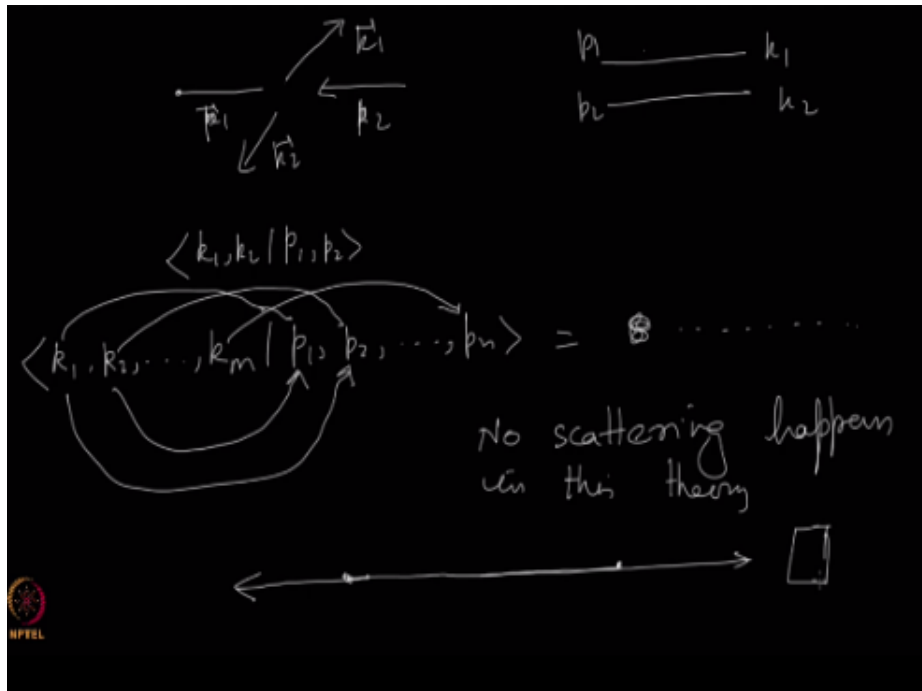 k⃗1
p1 k1
p⃗1 p2
p2 k2
k⃗2
⟨k1, k2 | p1, p2⟩
⟨k1, k2, ..., km | p1, p2, ..., pn⟩ = ..........
No scattering happens
in this theory
NPTEL